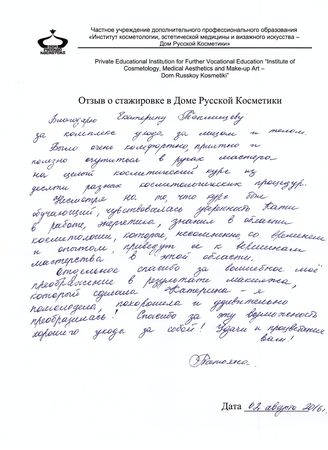 Частное учреждение дополнительного профессионального образования
«Институт косметологии, эстетической медицины и визажного искусства –
Дом Русской Косметики»
Private Educational Institution for Further Vocational Education “Institute of
Cosmetology, Medical Aesthetics and Make-up Art –
Dom Russkoy Kosmetiki”
Отзыв о стажировке в Доме Русской Косметики
Благодарю Екатерину
за комплекс ухода за лицом и телом.
Было очень комфортно, приятно и
полезно очутиться в руках мастера
на целой косметический курс из
десяти разных косметологических процедур.
Несмотря на то, что курс был
обучающий, чувствовалась уверенность Кати
в работе, энергетика, знания в области
косметологии, которые несомненно со временем
и опытом, приведут её к вершинам
мастерства в этой области.
Отдельное спасибо за волшебное моё
преображение в результате макияжа,
который сделала Катерина – я
помолодела, похорошела и удивительно
преобразилась! Спасибо за эту возможность
хорошего ухода за собой! Удачи и процветания
вам!
Татьяна
Дата 02 августа 2016г.